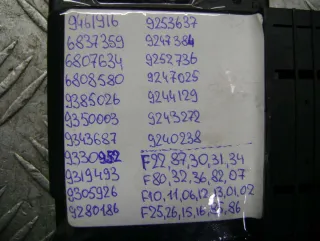 9461916 9253637
6837359 9247384
6807634 9252736
6808580 9247025
9385026 9244129
9350003 9243272
9343687 9240238
9330952 F22 87,30,31,34
9319493 F80,32,36,82,07
9305926 F10,11,06,12,13,01,02
9280186 F25,26,15,16,85,86